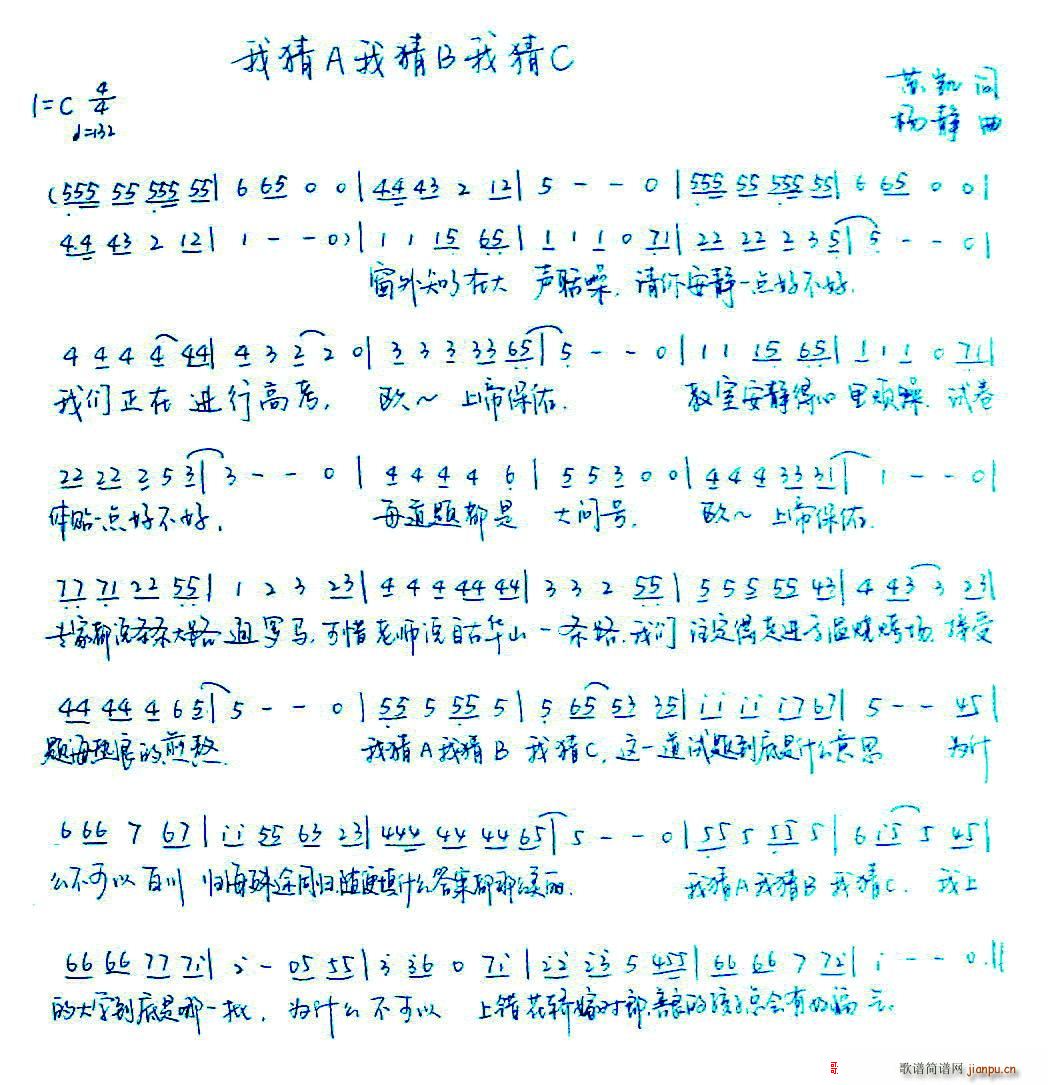 我猜A我猜B我猜C
苏凯 词
1=C 4/4
♩=132
杨静 曲
(555 55 555 55| 6 65 0 0| 44 43 2 12| 5 - - 0 |555 55 555 55| 6 65 0 0|
44 43 2 12| 1 - - 0)| 1 1 15 65| 1 1 1 0 71| 22 22 2 3 5| 5 - - 0|
窗外知了在大 声聒噪,请你安静一点好不好.
4 4 4 4 44| 4 3 2 2 0| 3 3 3 33 65| 5 - - 0| 1 1 15 65| 1 1 1 0 71|
我们正在 进行高考, 欧~ 上帝保佑. 教室安静得心里烦躁.试卷
22 22 2 5 3| 3 - - 0 | 4 4 4 4 6 | 5 5 3 0 0| 4 4 4 33 31| 1 - - 0|
体贴一点好不好, 每道题都是 大问号, 欧~ 上帝保佑.
77 71 22 55| 1 2 3 23| 4 4 4 44 44| 3 3 2 55| 5 5 5 55 43| 4 43 3 23|
专家都说条条大路 通罗马,可惜老师说自古华山一条路.我们 注定得走进 烧烤场,接受
44 44 4 6 5| 5 - - 0 | 55 5 55 5| 5 65 53 35| i i i i7 67| 5 - - 45|
题海 的煎熬 我猜A我猜B 我猜C,这一道试题到底是什么意思 为什
6 66 7 67| i i 55 63 23| 444 44 44 65| 5 - - 0 | 55 5 55 5| 6 i5 5 45|
么不可以百川 归海殊途同归,随便填什么答案都那么美丽. 我猜A我猜B 我猜C. 我上
66 66 77 7i| 2 - 05 55| 3 36 0 7i| 22 23 5 455| 66 66 7 72| i - - 0.||
的大学到底是哪一批, 为什么不可以 上错花轿嫁对郎,善良的孩子总会有好福气.
歌谱简谱网 jianpu.cn